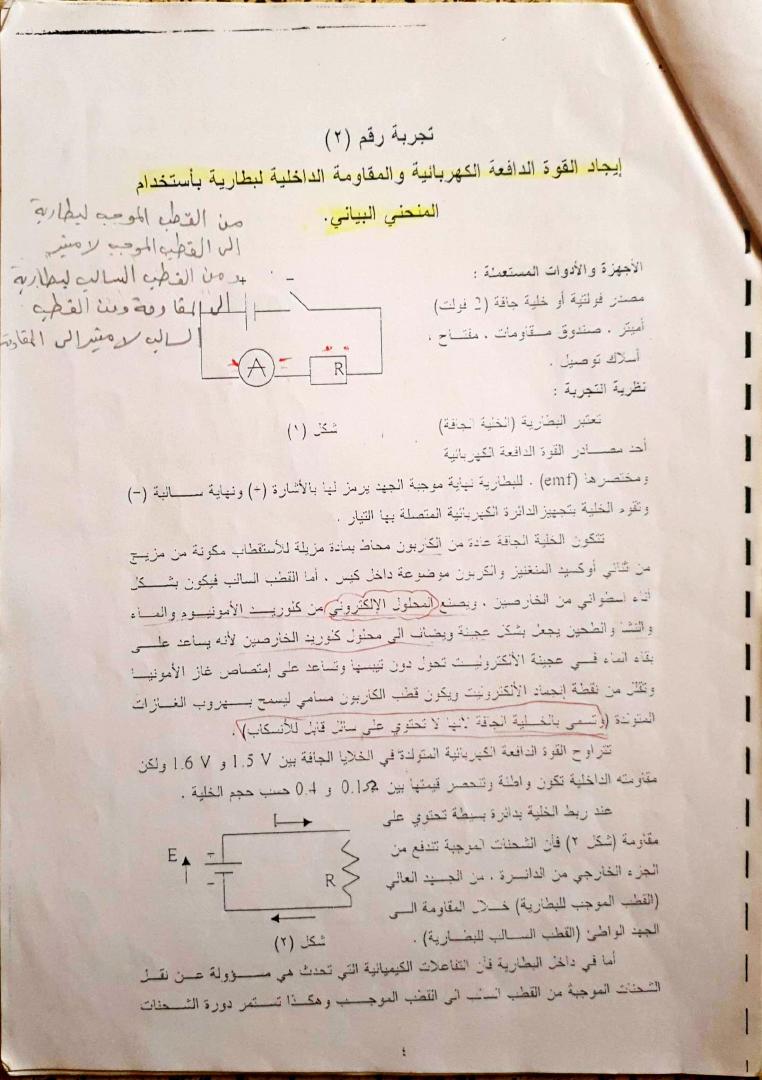 تجربة رقم (٢)
إيجاد القوة الدافعة الكهربائية والمقاومة الداخلية لبطارية بأستخدام
المنحني البياني.
من القطب الموجب لبطارية
الى القطب الموجب لاميتر
ومن القطب السالب لبطارية
الى المقاومة ومن القطب
السالب لاميتر الى المقاومة
الأجهزة والأدوات المستعملة :
مصدر فولتية أو خلية جافة (2 فولت)
أميتر ، صندوق مقاومات ، مفتاح ،
أسلاك توصيل .
+ -
A R
شكل (١)
نظرية التجربة :
تعتبر البطارية (الخلية الجافة)
أحد مصادر القوة الدافعة الكهربائية
ومختصرها (emf) . للبطارية نهاية موجبة الجهد يرمز لها بالأشارة (+) ونهاية سالبة (-)
وتقوم الخلية بتجهيز الدائرة الكهربائية المتصلة بها التيار .
تتكون الخلية الجافة عادة من الكاربون محاط بمادة مزيلة للأستقطاب مكونة من مزيج
من ثنائي أوكسيد المنغنيز والكربون موضوعة داخل كيس ، أما القطب السالب فيكون بشكل
أناء اسطواني من الخارصين ، ويصنع المحلول الإلكتروني من كلوريد الأمونيوم والماء
والنشا والطحين يجعل بشكل عجينة ويضاف الى محلول كلوريد الخارصين لأنه يساعد على
بقاء الماء في عجينة الألكتروليت تحول دون تيبسها وتساعد على إمتصاص غاز الأمونيا
وتقلل من نقطة إنجماد الألكتروليت ويكون قطب الكاربون مسامي ليسمح بهروب الغازات
المتولدة (وتسمى بالخلية الجافة لأنها لا تحتوي على سائل قابل للأنسكاب) .
تتراوح القوة الدافعة الكهربائية المتولدة في الخلايا الجافة بين 1.5 V و 1.6 V ولكن
مقاومته الداخلية تكون واطئة وتنحصر قيمتها بين 0.1Ω و 0.4 حسب حجم الخلية .
عند ربط الخلية بدائرة بسيطة تحتوي على
مقاومة (شكل ٢) فأن الشحنات الموجبة تندفع من
الجزء الخارجي من الدائرة ، من الجهد العالي
(القطب الموجب للبطارية) خلال المقاومة الى
الجهد الواطئ (القطب السالب للبطارية) .
I
E + - R
شكل (٢)
أما في داخل البطارية فأن التفاعلات الكيميائية التي تحدث هي مسؤولة عن نقل
الشحنات الموجبة من القطب السالب الى القطب الموجب وهكذا تستمر دورة الشحنات
٤